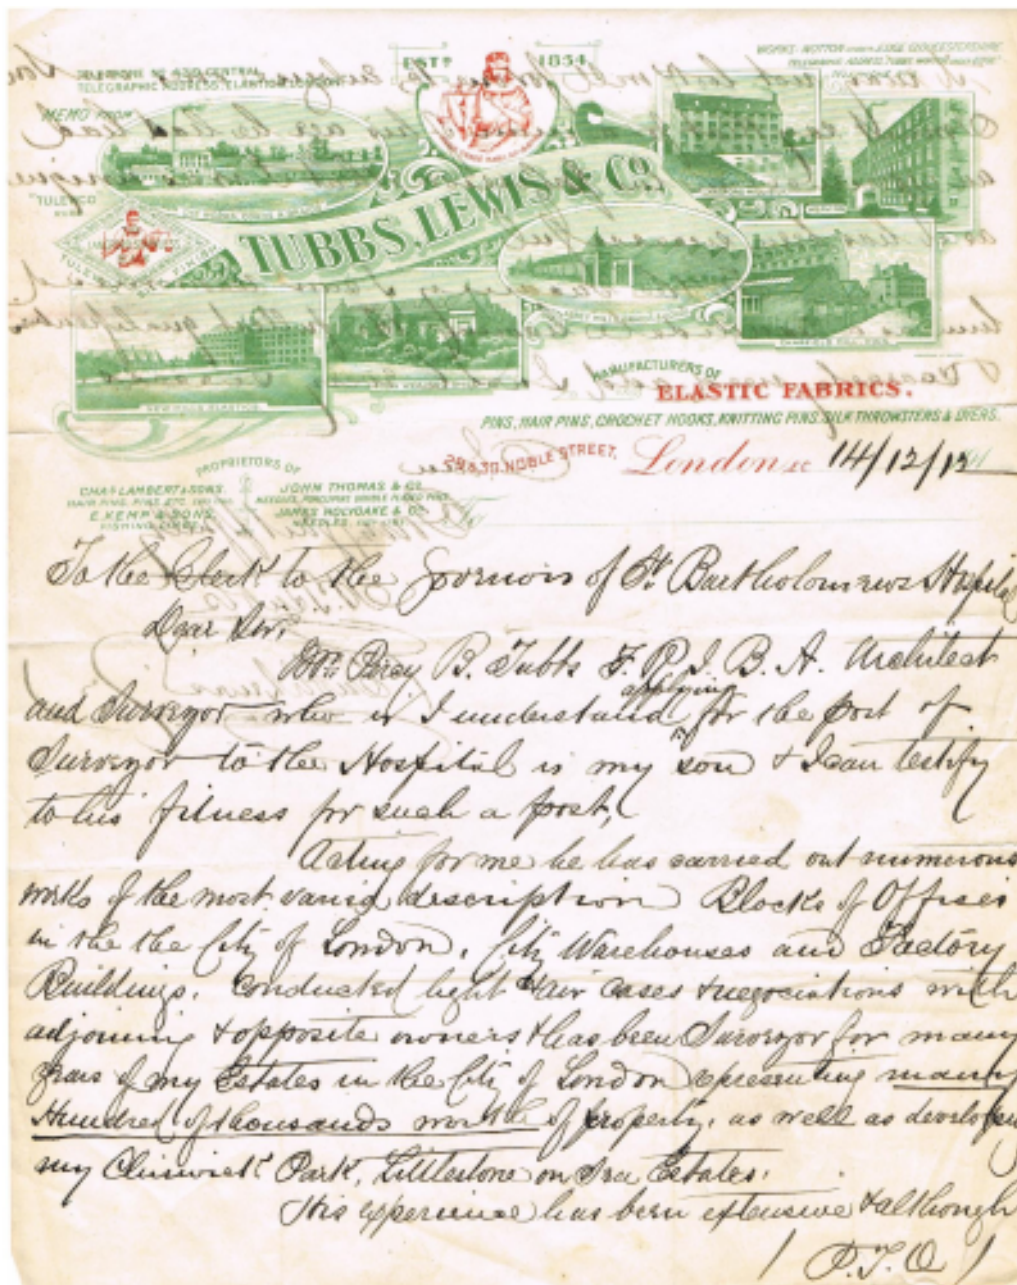 TELEPHONE Nº 4390 CENTRAL.
TELEGRAPHIC ADDRESS, ELASTICA, LONDON.
ESTD 1854.
WORKS: WOTTON UNDER EDGE GLOUCESTERSHIRE
MEMO FROM
TUBBS, LEWIS & Co.
MANUFACTURERS OF
ELASTIC FABRICS.
PINS, HAIR PINS, CROCHET HOOKS, KNITTING PINS, SILK THROWSTERS & DYERS.
29 & 30, NOBLE STREET,
London E.C. 14/12/12
PROPRIETORS OF
CHAS LAMBERT & SONS.
HAIR PINS, PINS, ETC.
E. KEMP & SONS,
JOHN THOMAS & Co
JAMES HOLYOAKE & Co.
NEEDLES.
To the Clerk to the Governors of St. Bartholomews Hospital
Dear Sir,
Mr. Percy B. Tubbs F. R. I. B. A. Architect
and Surveyor who is I understand applying for the post of
Surveyor to the Hospital is my son & I can testify
to his fitness for such a post,
Acting for me he has carried out numerous
works of the most varied description Blocks of Offices
in the the City of London, City Warehouses and Factory
Buildings. Conducted light & air cases & negociations with
adjoining & opposite owners & has been Surveyor for many
years of my Estates in the City of London representing many
Hundred of thousands worth of property, as well as developing
my Chiswick Park, Littlestone on Sea Estates.
His experience has been extensive & although
/ P.T.O /